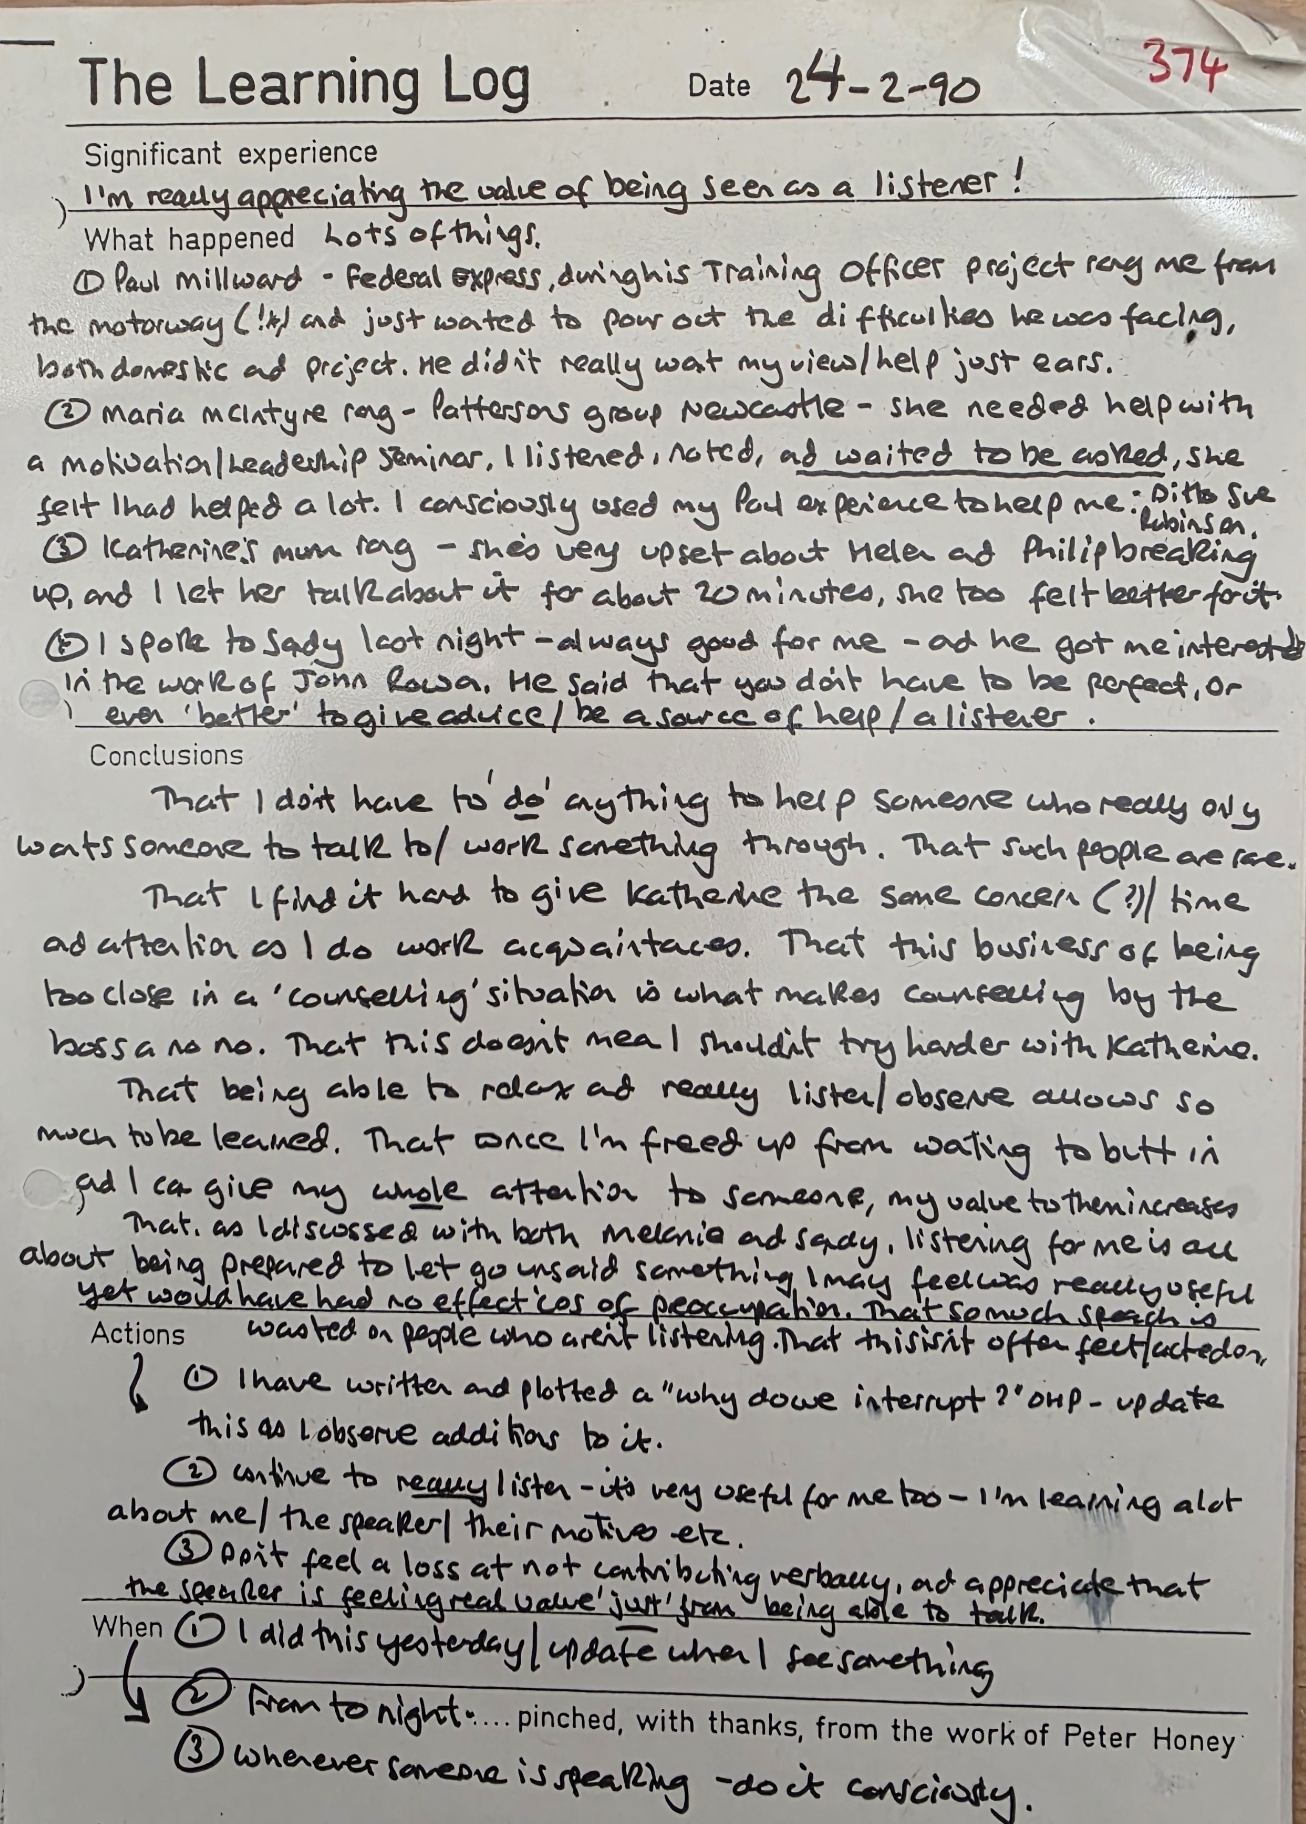 The Learning Log Date 24-2-90 374
Significant experience
I'm really appreciating the value of being seen as a listener!
What happened Lots of things.
① Paul Millward - Federal Express, during his Training Officer project rang me from
the motorway (!*) and just wanted to pour out the difficulties he was facing,
both domestic and project. He didn't really want my view/help just ears.
② Maria McIntyre rang - Pattersons group Newcastle - she needed help with
a motivation/leadership seminar. I listened, noted, and waited to be asked, she
felt I had helped a lot. I consciously used my Paul experience to help me: Ditto Sue
Robinson.
③ Katherine's mum rang - she's very upset about Helen and Philip breaking
up, and I let her talk about it for about 20 minutes, she too felt better for it.
I spoke to Sandy last night - always good for me - and he got me interested
in the work of John Rowan. He said that you don't have to be perfect, or
even 'better' to give advice/be a source of help/a listener.
Conclusions
That I don't have to 'do' anything to help someone who really only
wants someone to talk to/ work something through. That such people are rare.
That I find it hard to give Katherine the same concern (?)/ time
and attention as I do work acquaintances. That this business of being
too close in a 'counselling' situation is what makes counselling by the
boss a no no. That this doesn't mean I shouldn't try harder with Katherine.
That being able to relax and really listen/observe allows so
much to be learned. That once I'm freed up from waiting to butt in
and I can give my whole attention to someone, my value to them increases
That, as I discussed with both Melanie and Sandy, listening for me is all
about being prepared to let go unsaid something I may feel was really useful
yet would have had no effect 'cos of peoccupation. That so much speech is
Actions wasted on people who aren't listening. That this isn't often felt/acted on.
① I have written and plotted a "why do we interrupt?" OHP - update
this as I observe additions to it.
② Continue to really listen - it's very useful for me too - I'm learning a lot
about me/ the speaker/ their motives etc.
③ Don't feel a loss at not contributing verbally, and appreciate that
the speaker is feeling real value 'just' from being able to talk.
When ① I did this yesterday/update when I see something
② From to night.... pinched, with thanks, from the work of Peter Honey
③ Whenever someone is speaking - do it consciously.